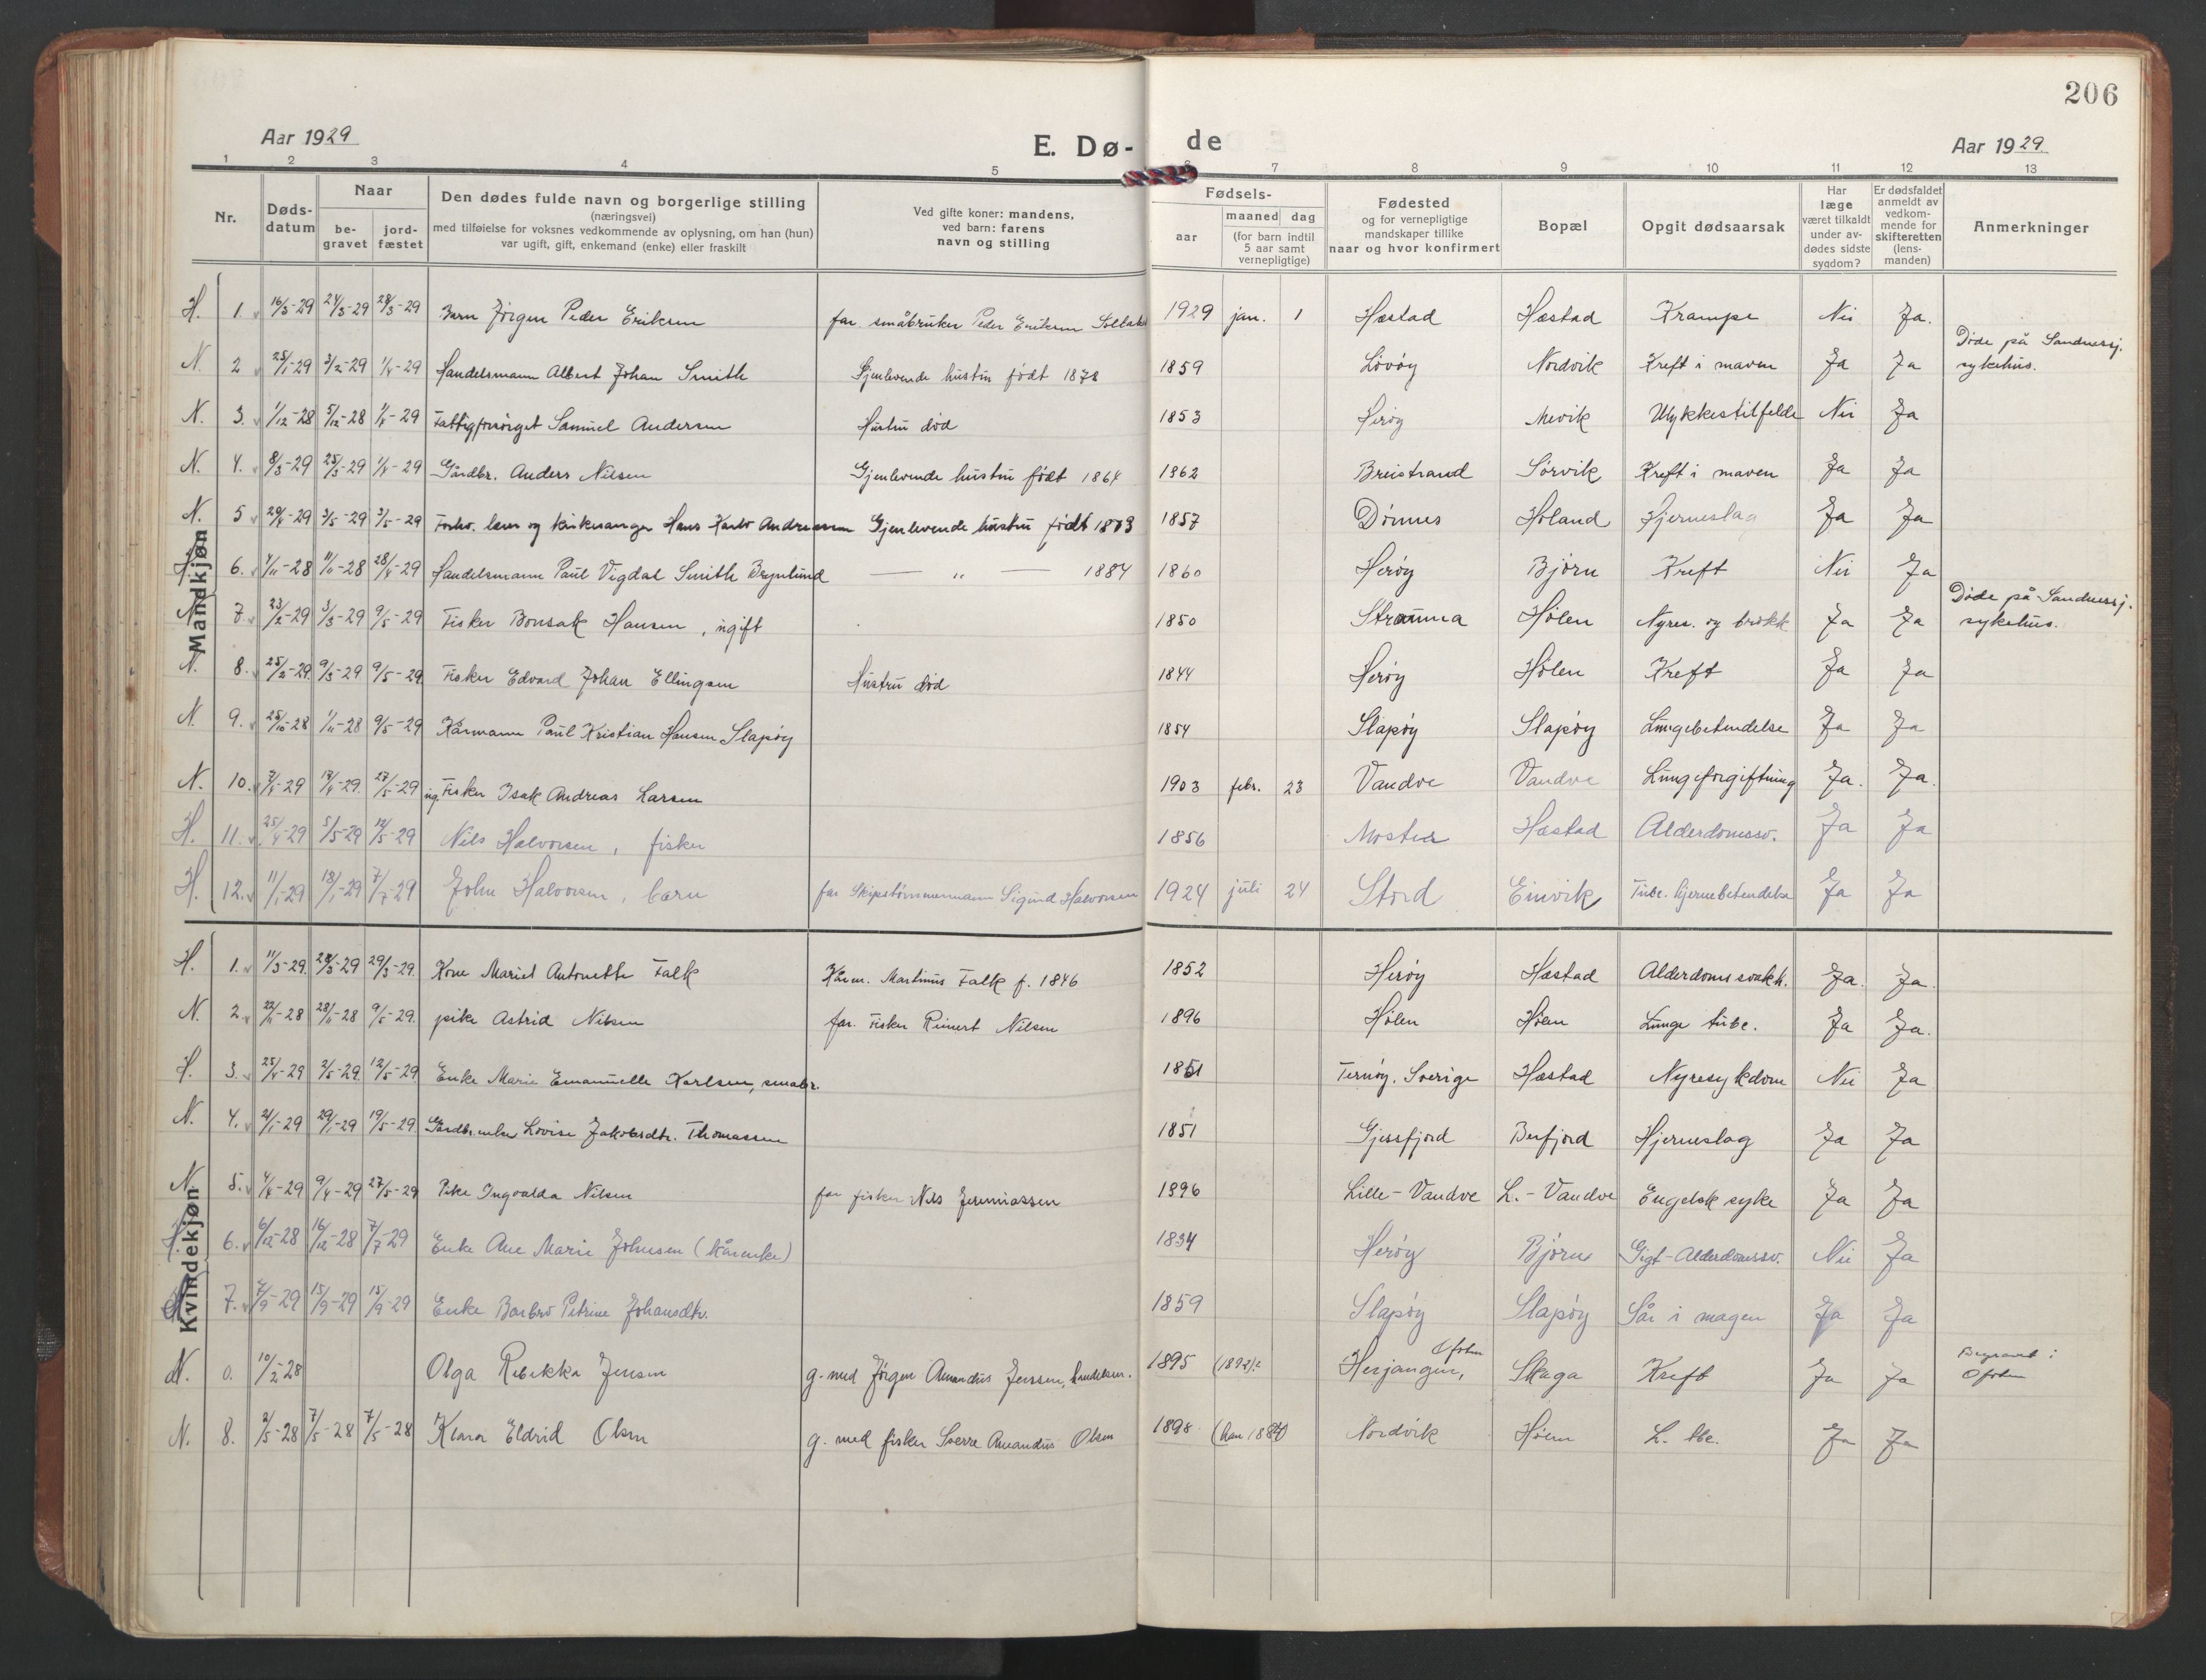 206
Aar 1929
E. Dø-
de
Aar 1929
1 2 3 4 5 6 7 8 9 10 11 12 13
Nr.
Døds-
datum
Naar
be-
gravet
jord-
fæstet
Den dødes fulde navn og borgerlige stilling
(næringsvei)
med tilføielse for voksnes vedkommende av oplysning, om han (hun)
var ugift, gift, enkemand (enke) eller fraskilt
Ved gifte koner: mandens,
ved barn: farens
navn og stilling
Fødsels-
aar
maaned dag
(for barn indtil
5 aar samt
vernepligtige)
Fødested
og for vernepligtige
mandskaper tillike
naar og hvor konfirmert
Bopæl
Opgit dødsaarsak
Har
læge
været tilkaldt
under av-
dødes sidste
sygdom?
Er dødsfaldet
anmeldt av
vedkom-
mende for
skifteretten
(lens-
manden)
Anmerkninger
Mandkjøn
H. 1. 16/3-29 24/3-29 28/3-29 Barn Jørgen Peder Eriksen far. småbruker Peder Eriksen 1929 jan. 1 Hæstad Hæstad Krampe Nei Ja.
N. 2 25/1-29 3/2-29 1/4-29 Handelsmann Albert Johan Smith Gjenlevende hustru født 1878 1859 Løvøy Nordvik Kreft i maven Ja Ja Døde på Sandnessj. sykehus.
N. 3. 1/12-28 5/12-28 1/4-29 Fattigforsørget Samuel Andersen Hustru død 1853 Herøy Mevik Ulykkestilfelde Nei Ja
N. 4. 8/3-29 25/3-29 1/4-29 Gårdbr. Anders Nilsen Gjenlevende hustru født 1864 1862 Breistrand Sørvik Kreft i maven Ja Ja
N. 5 29/4-29 3/5-29 3/5-29 Forhv. lærer og kirkesanger Hans Karlo Andreassen Gjenlevende hustru født 1873 1857 Dønnes Høland Hjerneslag Ja Ja
H. 6. 4/11-28 11/11-28 28/4-29 Handelsmann Paul Vigdal Smith Brynlund — „ — 1884 1860 Herøy Bjørn Kreft Nei Ja
N. 7. 23/2-29 3/3-29 9/5-29 Fisker Bonsak Hansen, ugift 1850 Straumna Hølen Nyres. og brokk Ja Ja Døde på Sandnessj. sykehus.
N. 8. 25/2-29. 9/3-29 9/5-29. Fisker Edvard Johan Ellingsen Hustru død 1844 Herøy Hølen Kreft Ja Ja
N. 9. 25/10-28 1/11-28 9/5-29 Kårmann Paul Kristian Hansen Slapøy 1854 Slapøy Slapøy Lungebetendelse Ja Ja
N. 10. 7/4-29 17/4-29. 27/5-29 ug. Fisker Isak Andreas Larsen 1903 febr. 23 Vandve Vandve Lungeforgiftning Ja. Ja.
H. 11. 25/4-29 5/5-29 12/5-29 Nils Halvorsen, fisker 1856 Moster Hæstad Alderdomssv. Ja Ja
H. 12. 11/1-29 18/1-29 7/7-29 John Halvorsen, barn far Skipstømmermann Sigurd Halvorsen 1924 juli 24 Stord Einvik Tube. hjernebetendelse Ja Ja
Kvindekjøn
H. 1. 11/3-29. 20/3-29 29/3-29. Kone Mariel Antonette Falk Kårm. Martinus Falk f. 1846 1852 Herøy Hæstad Alderdomssvakh. Ja. Ja.
N. 2. 22/11-28 28/11-28 9/5-29. pike Astrid Nilsen far. Fisker Reinert Nilsen 1896 Hølen Hølen Lunge tube. Ja Ja.
H. 3. 25/4-29 2/5-29. 12/5-29 Enke Marie Emanuelle Karlsen, småbr. 1851 Ternøy, Sverige Hæstad Nyresykdom Nei Ja
N. 4. 21/1-29 29/1-29 19/5-29 Gårdbr.enke Lovise Jakobsdtr. Thomassen 1851 Gjessfjord Berfjord Hjerneslag Ja Ja
N. 5. 4/4-29 9/4-29 27/5-29 Pike Ingvalda Nilsen far fisker Nils Jeremiassen 1896 Lille-Vandve L.-Vandve Engelsk syke Ja Ja
H. 6. 6/12-28 16/12-28 7/7-29 Enke Ane Marie Johnsen (kårenke) 1834 Herøy Bjørn Gigt-Alderdomssv. Nei Ja
7. 7/9-29 15/9-29 15/9-29 Enke Barbro Petrine Johansdtr. 1859 Slapøy Slapøy Sår i magen Ja Ja
N. 0. 10/2-28 Olga Rebekka Jensen g. med Jørgen Amandus Jenssen, handelsm. 1895 (1892) Herjangen, Ofoten Skaga Kreft Ja Ja Begravet i Ofoten
N. 8. 2/5-28 7/5-28 7/5-28 Klara Eldrid Olsen g. med fisker Sverre Amandus Olsen 1898 (han 1884) Nordvik Hølen L. tbc. Ja Ja